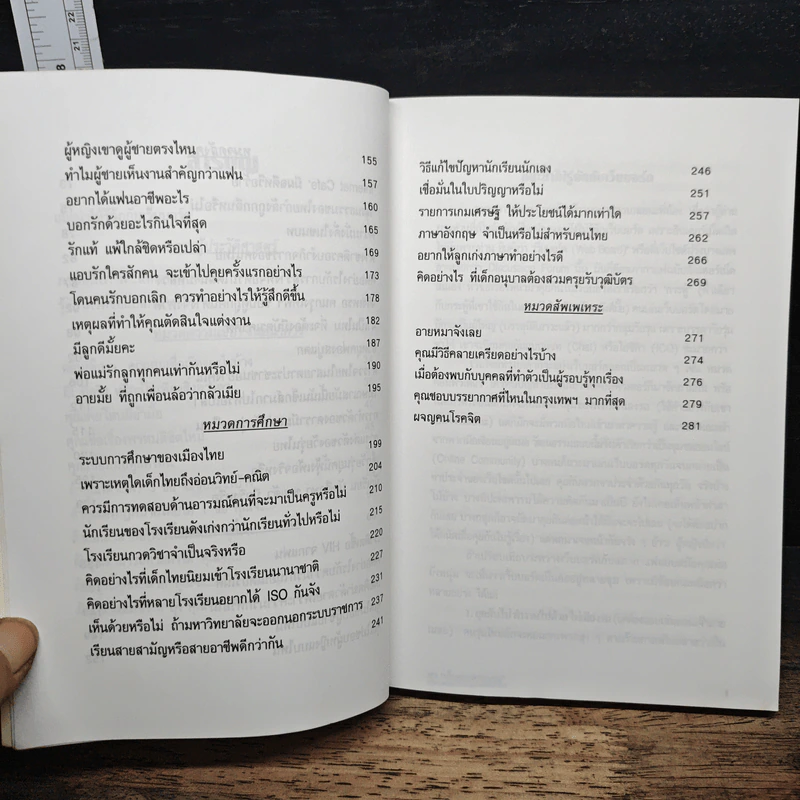 22
21
8
ผู้หญิงเขาดูผู้ชายตรงไหน 155
ทำไมผู้ชายเห็นงานสำคัญกว่าแฟน 157
อยากได้แฟนอาชีพอะไร 160
บอกรักด้วยอะไรกินใจที่สุด 165
รักแท้ แพ้ใกล้ชิดหรือเปล่า 169
แอบรักใครสักคน จะเข้าไปคุยครั้งแรกอย่างไร 173
โดนคนรักบอกเลิก ควรทำอย่างไรให้รู้สึกดีขึ้น 178
เหตุผลที่ทำให้คุณตัดสินใจแต่งงาน 182
มีลูกดีมั้ยคะ 187
พ่อแม่รักลูกทุกคนเท่ากันหรือไม่ 190
อายมั้ย ที่ถูกเพื่อนล้อว่ากลัวเมีย 195
หมวดการศึกษา
ระบบการศึกษาของเมืองไทย 199
เพราะเหตุใดเด็กไทยถึงอ่อนวิทย์-คณิต 204
ควรมีการทดสอบด้านอารมณ์คนที่จะมาเป็นครูหรือไม่ 210
นักเรียนของโรงเรียนดังเก่งกว่านักเรียนทั่วไปหรือไม่ 215
โรงเรียนกวดวิชาจำเป็นจริงหรือ 220
คิดอย่างไรที่เด็กไทยนิยมเข้าโรงเรียนนานาชาติ 227
คิดอย่างไรที่หลายโรงเรียนอยากได้ ISO กันจัง 231
เห็นด้วยหรือไม่ ถ้ามหาวิทยาลัยจะออกนอกระบบราชการ 237
เรียนสายสามัญหรือสายอาชีพดีกว่ากัน 241
วิธีแก้ไขปัญหานักเรียนนักเลง 246
เชื่อมั่นในใบปริญญาหรือไม่ 251
รายการเกมเศรษฐี ให้ประโยชน์ได้มากเท่าใด 257
ภาษาอังกฤษ จำเป็นหรือไม่สำหรับคนไทย 262
อยากให้ลูกเก่งภาษาทำอย่างไรดี 266
คิดอย่างไร ที่เด็กอนุบาลต้องสวมครุยรับวุฒิบัตร 269
หมวดสัพเพเหระ
อายหมาจังเลย 271
คุณมีวิธีคลายเครียดอย่างไรบ้าง 274
เมื่อต้องพบกับบุคคลที่ทำตัวเป็นผู้รอบรู้ทุกเรื่อง 276
คุณชอบบรรยากาศที่ไหนในกรุงเทพฯ มากที่สุด 279
ผจญคนโรคจิต 281